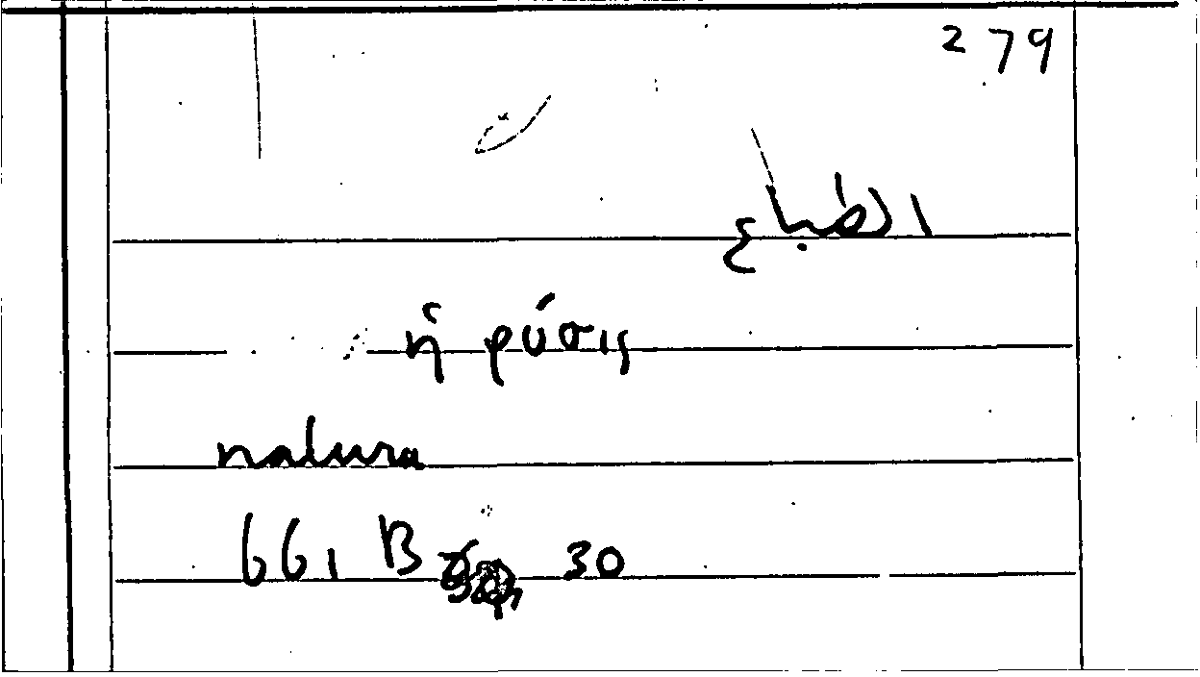 279
الطباع
ἡ φύσις
natura
661 B 30